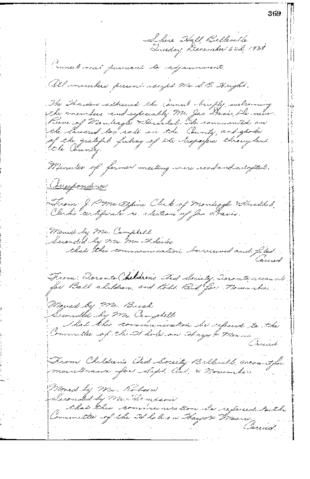 369
Shire Hall Belleville
Tuesday December 6th, 1938
Council met pursuant to adjournment
All members present except Mr. S.B. Haight.
The Warden addressed the Council briefly welcoming
the members and especially Mr. Jas Davis, the new
Reeve of Monteagle & Herschel. He commented on
the tax sale in the County, and spoke
of the grateful feeling of the taxpayers throughout
the County.
Minutes of former meeting were read and adopted.
Correspondence
From J.P. McAlpine Clerk of Monteagle & Herschel,
Clerks certificate re election of Jas Davis.
Moved by Mr. Campbell
Seconded by Mr.
that this communication be received and filed
Carried
From Toronto Children's Aid Society, Toronto, account
for Ball children, and for November.
Moved by Mr.
Seconded by Mr. Campbell
that this communication be referred to the
Committee of the Whole on Ways & Means
Carried
From Children's Aid Society Belleville account for
maintenance for Sept. Oct. & November
Moved by Mr.
Seconded by Mr. Thompson
that this communication be referred to the
Committee of the Whole on Ways & Means
Carried.